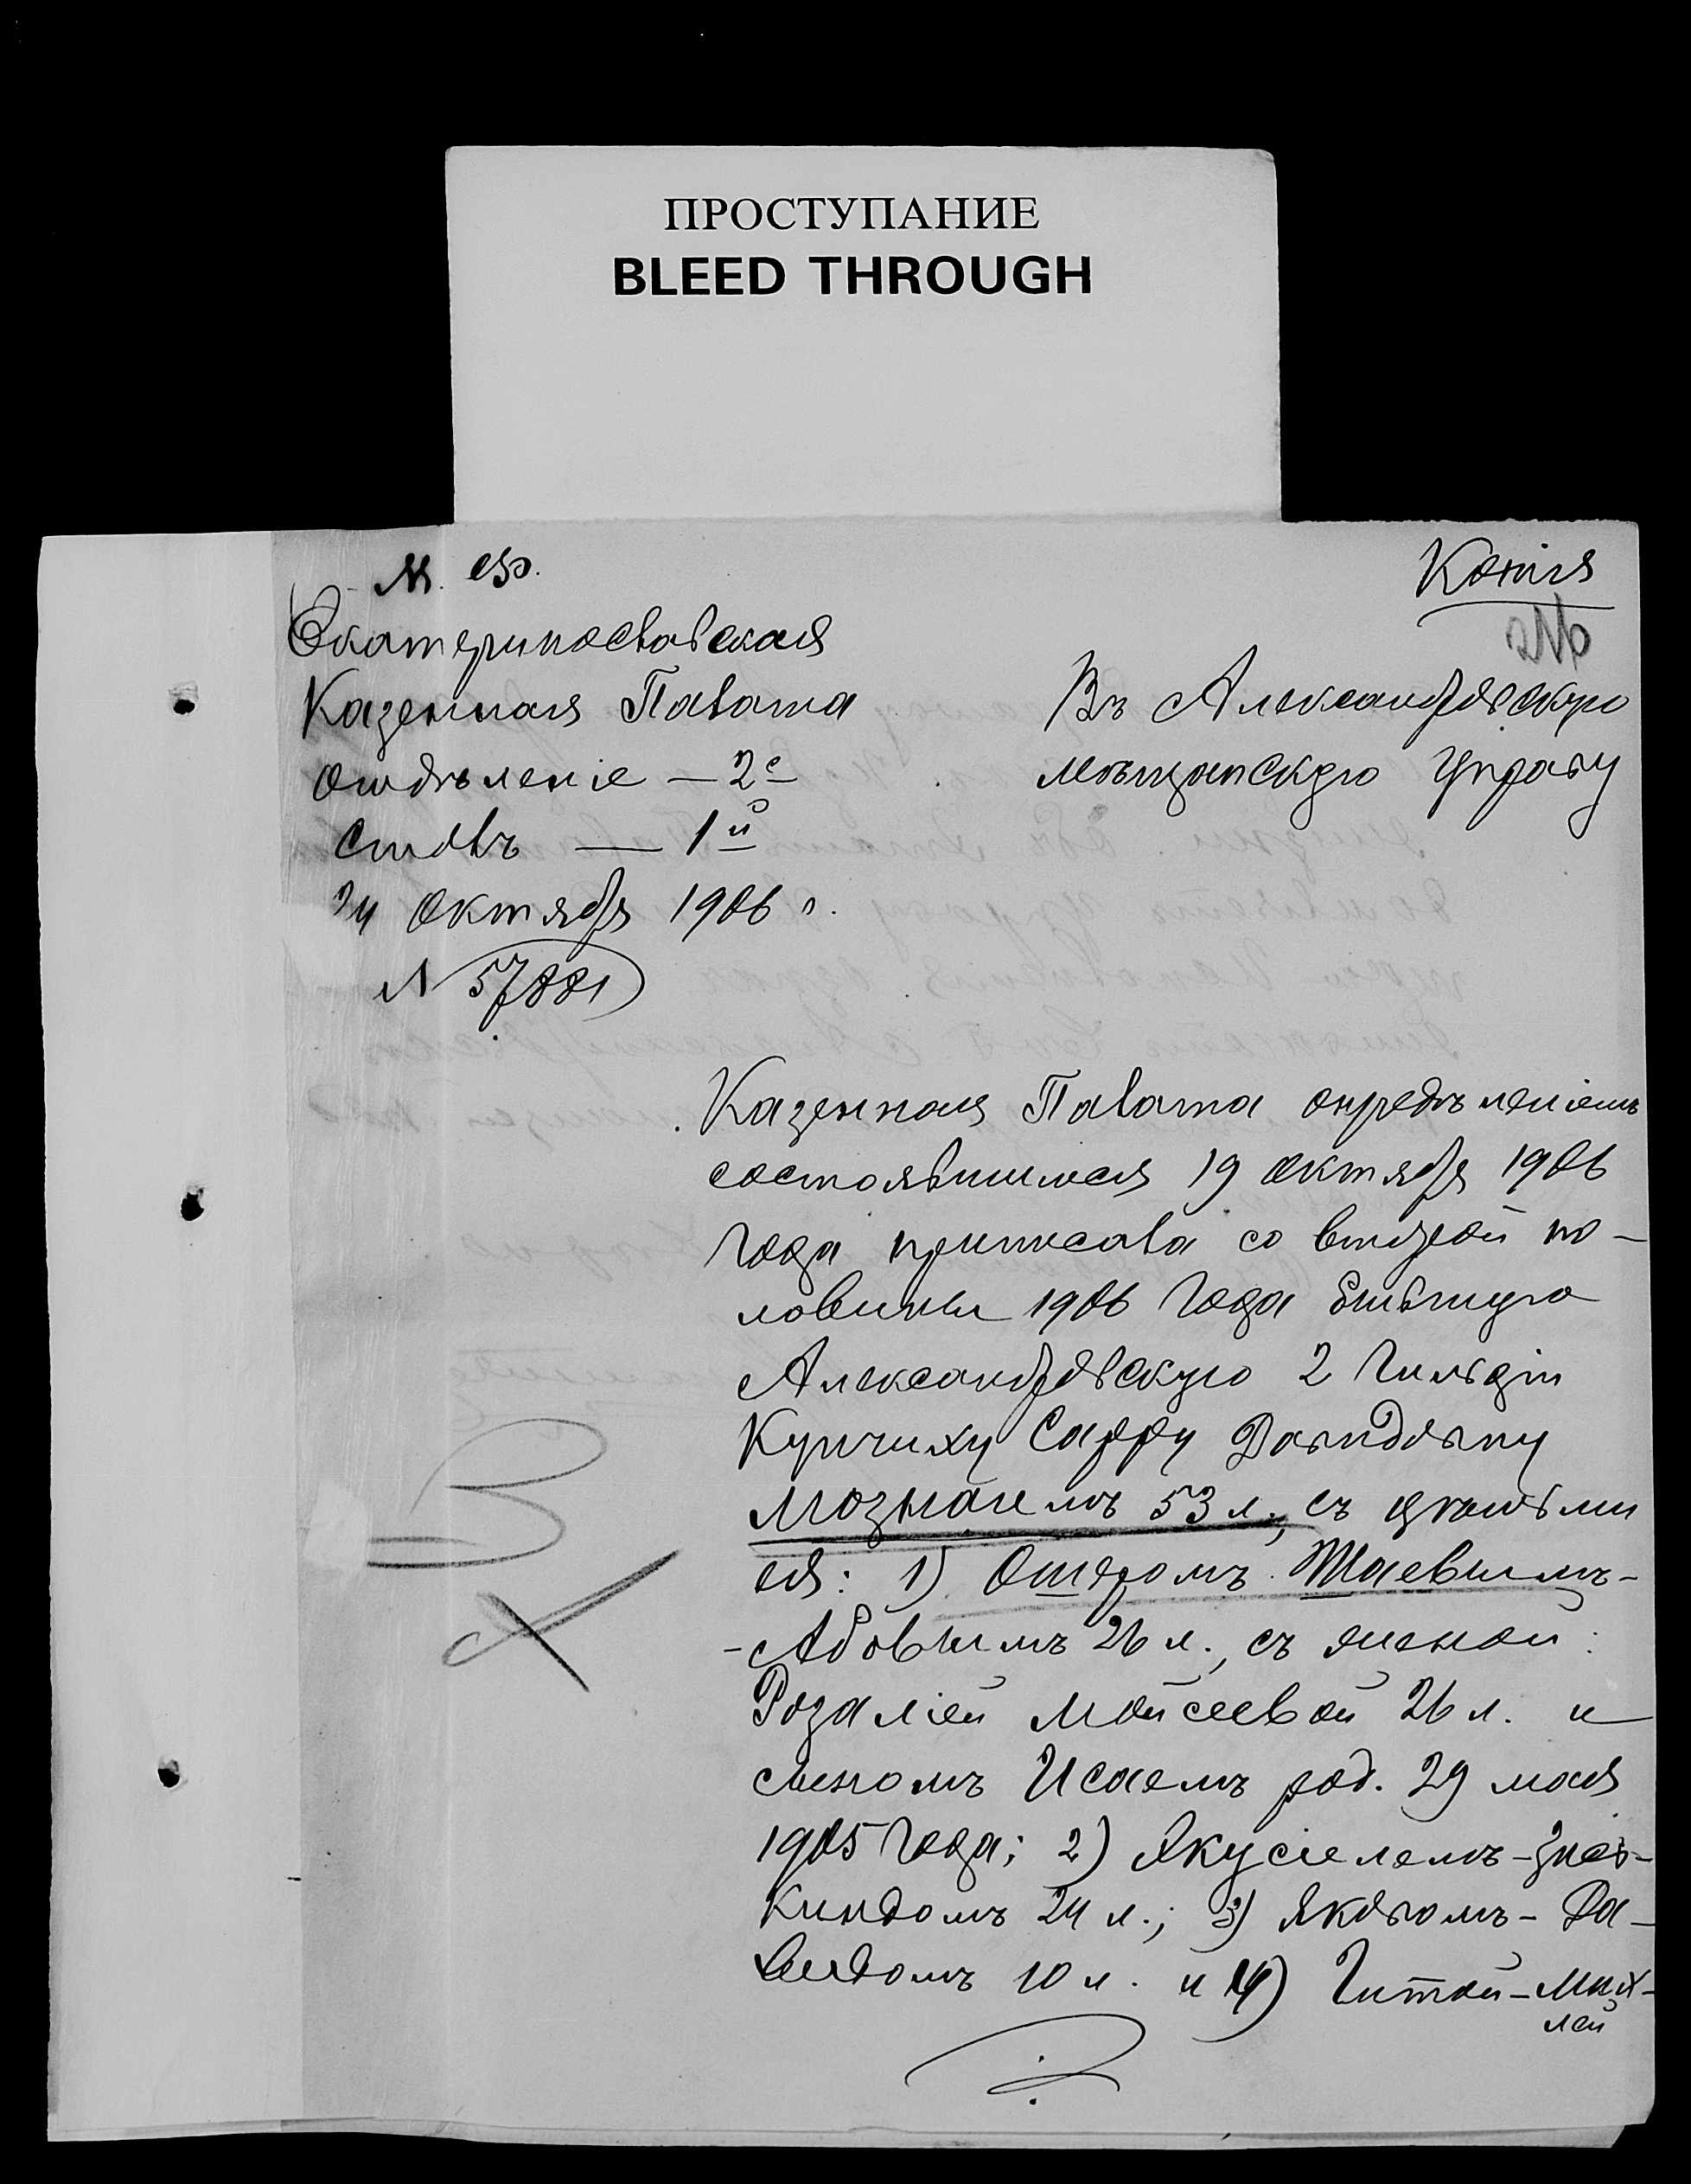 ПРОСТУПАНИЕ
BLEED THROUGH
Копія
М. Ф.
Екатеринославская
Казенная Палата
Отдѣленіе — 2е
Столъ — 1й
24 Октября 1906 г.
N 57881
Въ Александровскую
мѣщанскую Управу
Казенная Палата опредѣленіемъ
состоявшимся 19 Октября 1906
года приписала со второй по-
ловины 1906 года бывшую
Александровскую 2 гильдіи
Купчиху Сарру Давидовну
Мознаимъ 53 л., съ дѣтьми
ея: 1) Ошеромъ Шаевымъ-
-Абовымъ 26 л., съ женой:
Розаліей Мойсеевой 26 л. и
сыномъ Исаемъ род. 29 мая
1905 года; 2) Якусіелемъ-Зис-
киндомъ 24 л.; 3) Яковомъ-Да-
видомъ 10 л. и 4) Гитой-Мих-
лей